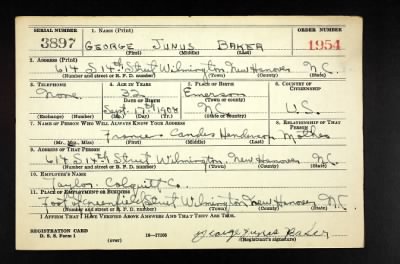 SERIAL NUMBER 1. NAME (Print) ORDER NUMBER
3897 GEORGE JUNUS BAKER 1954
(First) (Middle) (Last)
2. ADDRESS (Print)
614 S 14th Street Wilmington, New Hanover N.C.
(Number and street or R. F. D. number) (Town) (County) (State)
3. TELEPHONE 4. AGE IN YEARS 5. PLACE OF BIRTH 6. COUNTRY OF CITIZENSHIP
None 32 Emerson
DATE OF BIRTH (Town or county)
Sept 5th 1908 N.C. U.S.
(Exchange) (Number) (Mo.) (Day) (Yr.) (State or country)
7. NAME OF PERSON WHO WILL ALWAYS KNOW YOUR ADDRESS 8. RELATIONSHIP OF THAT PERSON
Frances Candes Henderson Mother
(Mr., Mrs., Miss) (First) (Middle) (Last)
9. ADDRESS OF THAT PERSON
614 S 14th Street Wilmington, New Hanover N.C.
(Number and street or R. F. D. number) (Town) (County) (State)
10. EMPLOYER'S NAME
Taylor Colquitt Co.
11. PLACE OF EMPLOYMENT OR BUSINESS
Foot Greenfield Street Wilmington New Hanover N.C.
(Number and street or R. F. D. number) (Town) (County) (State)
I AFFIRM THAT I HAVE VERIFIED ABOVE ANSWERS AND THAT THEY ARE TRUE.
REGISTRATION CARD
D. S. S. Form 1 16—17105 George Junus Baker
(over) (Registrant's signature)